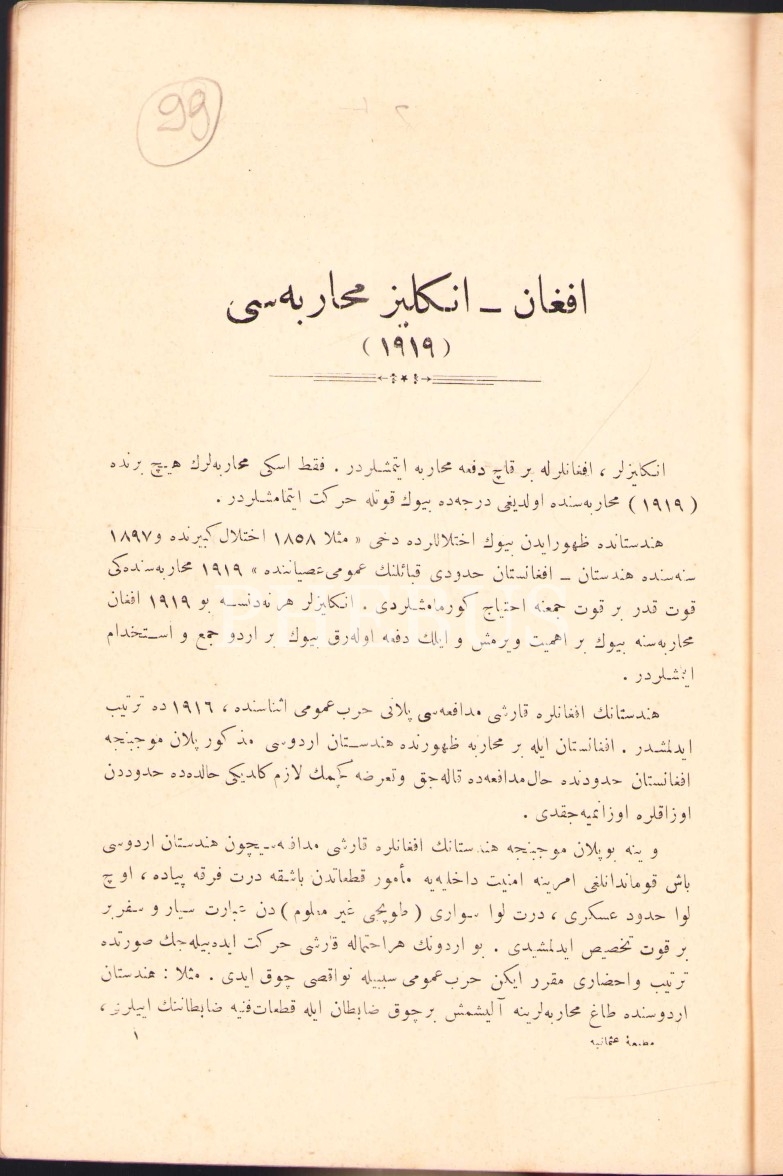 99
افغان – انكليز محاربه‌سى
(١٩١٩)
انكليزلر ، افغانلرله بر قاچ دفعه محاربه ايتمشلردر . فقط اسكى محاربه‌لرك هيچ برنده
(١٩١٩) محاربه‌سنده اولديغى درجه‌ده بيوك قوتله حركت ايتمامشلردر .
هندستانده ظهور ايدن بيوك اختلاللرده دخى « مثلا ١٨٥٨ اختلال كبيرنده و ١٨٩٧
سنه‌سنده هندستان – افغانستان حدودى قبائلنك عمومى عصياننده » ١٩١٩ محاربه‌سنده‌كى
قوت قدر بر قوت جمعنه احتياج كورمامشلردى . انكليزلر هر نه‌دنسه بو ١٩١٩ افغان
محاربه‌سنه بيوك بر اهميت ويرمش و ايلك دفعه اوله‌رق بيوك بر اردو جمع و استخدام
ايتمشلردر .
هندستانك افغانلره قارشى مدافعه‌سى پلانى حرب عمومى اثناسنده ، ١٩١٦ ده ترتيب
ايدلمشدر . افغانستان ايله بر محاربه ظهورنده هندستان اردوسى مذكور پلان موجبنجه
افغانستان حدودنده حال مدافعه‌ده قاله‌جق و تعرضه كچمك لازم كلديكى حالده‌ده حدوددن
اوزاقلره اوزانميه‌جقدى .
و ينه بو پلان موجبنجه هندستانك افغانلره قارشى مدافعه‌سيچون هندستان اردوسى
باش قوماندانلغى امرينه امنيت داخليه‌يه مأمور قطعاتدن باشقه درت فرقه پياده ، اوچ
لوا حدود عسكرى ، درت لوا سوارى (طوپچى غير معلوم) دن عبارت سيار و سفربر
بر قوت تخصيص ايدلمشيدى . بو اردونك هر احتماله قارشى حركت ايده‌بيله‌جك صورتده
ترتيب و احضارى مقرر ايكن حرب عمومى سببيله نواقصى چوق ايدى . مثلا : هندستان
اردوسنده طاغ محاربه‌لرينه آليشمش برچوق ضابطان ايله قطعات فنيه ضابطاننك اييلرى ،
مطبعهٔ عثمانيه
١